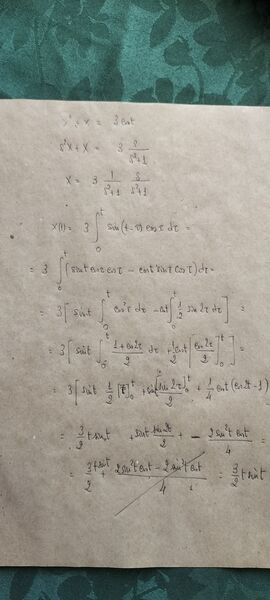 x'' + x = 3 cos t
s²X + X = 3 s/(s²+1)
X = 3 1/(s²+1) s/(s²+1)
x(t) = 3 ∫₀ᵗ sin(t-τ) cos τ dτ =
= 3 ∫₀ᵗ (sin t cos τ cos τ - cos t sin τ cos τ) dτ =
= 3 [ sin t ∫₀ᵗ cos² τ dτ - cos t ∫₀ᵗ 1/2 sin 2τ dτ ] =
= 3 [ sin t ∫₀ᵗ (1 + cos 2τ)/2 dτ + 1/2 cos t [ cos 2τ/2 ]₀ᵗ ] =
= 3 [ sin t 1/2 [τ]₀ᵗ + sin t [ sin 2τ/2 ]₀ᵗ + 1/4 cos t (cos 2t - 1)
= 3/2 t sin t + sin t sin 2t/2 + - 2 sin² t cos t/4 =
= 3/2 t sin t + (2 sin² t cos t - 2 sin² t cos t)/4 = 3/2 t sin t